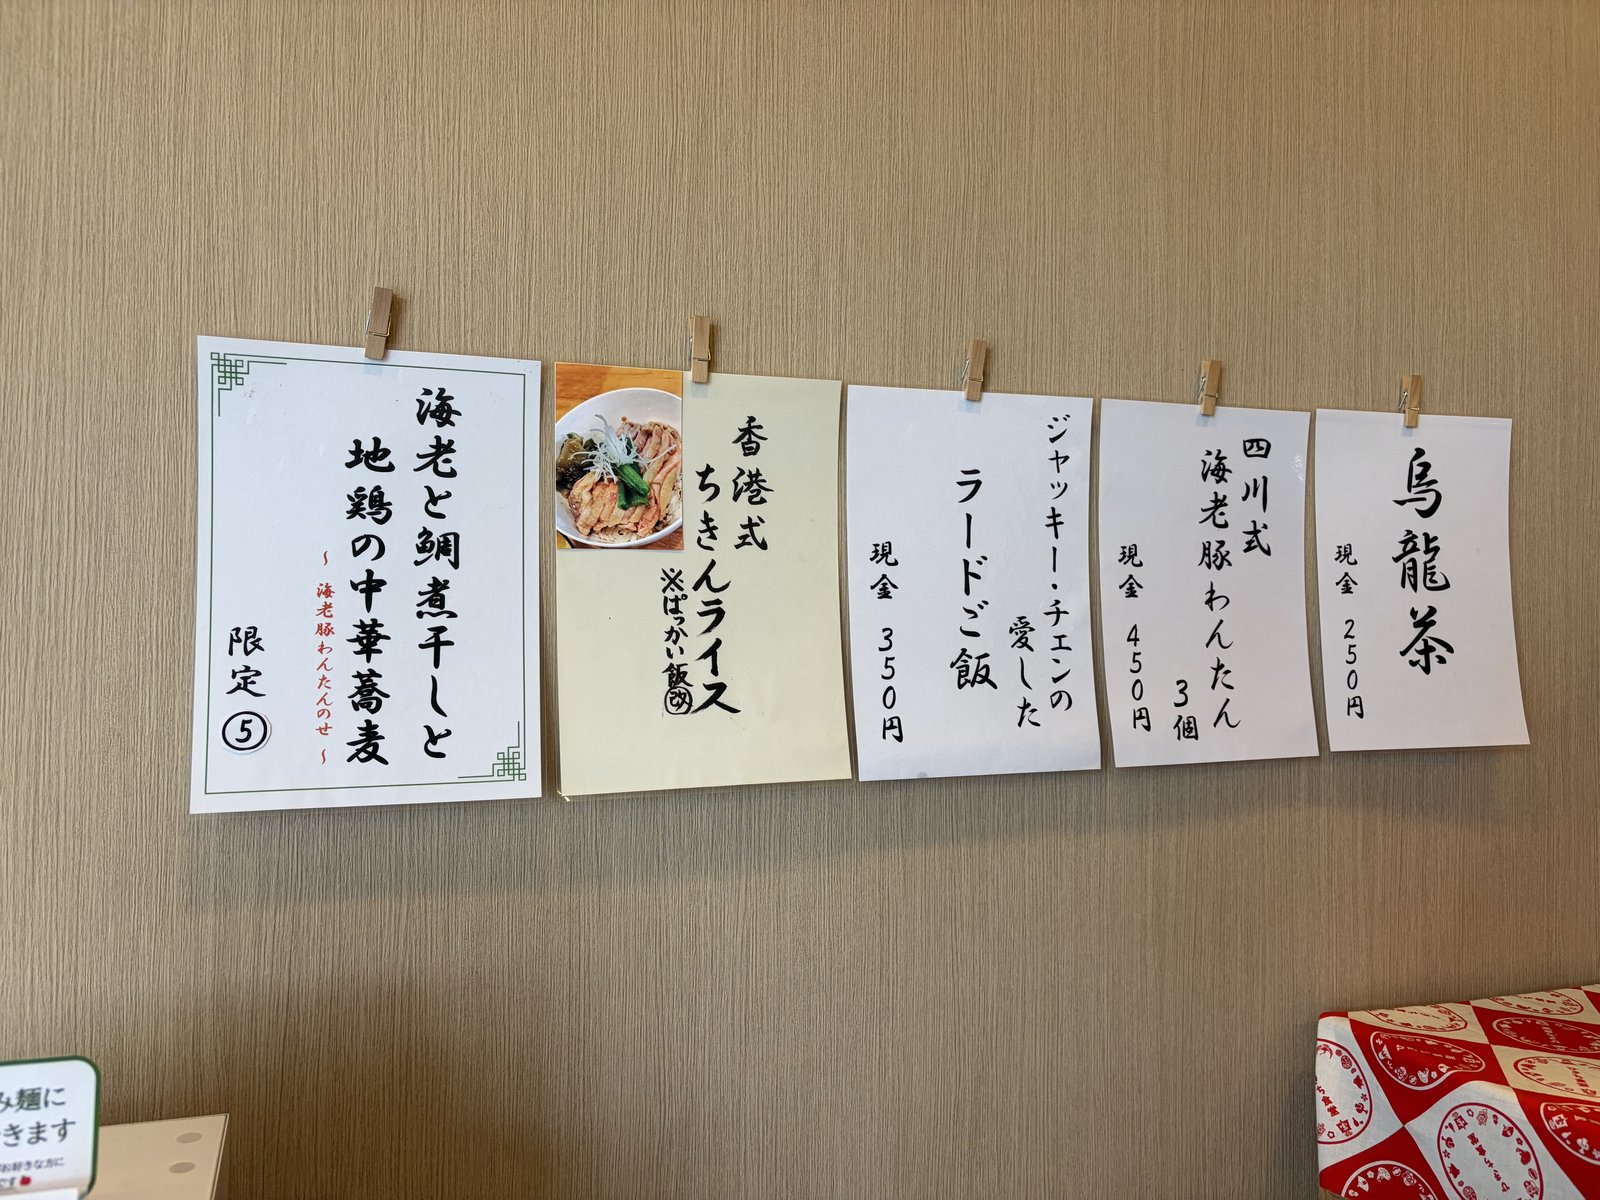 海老と鯛煮干しと
地鶏の中華蕎麦
～海老豚わんたんのせ～
限定⑤
香港式
ちきんライス
※ぱっかい飯改
ジャッキー・チェンの
愛した
ラードご飯
現金 350円
四川式
海老豚わんたん
3個
現金 450円
烏龍茶
現金 250円
み麺に
きます
お好きな方に
です